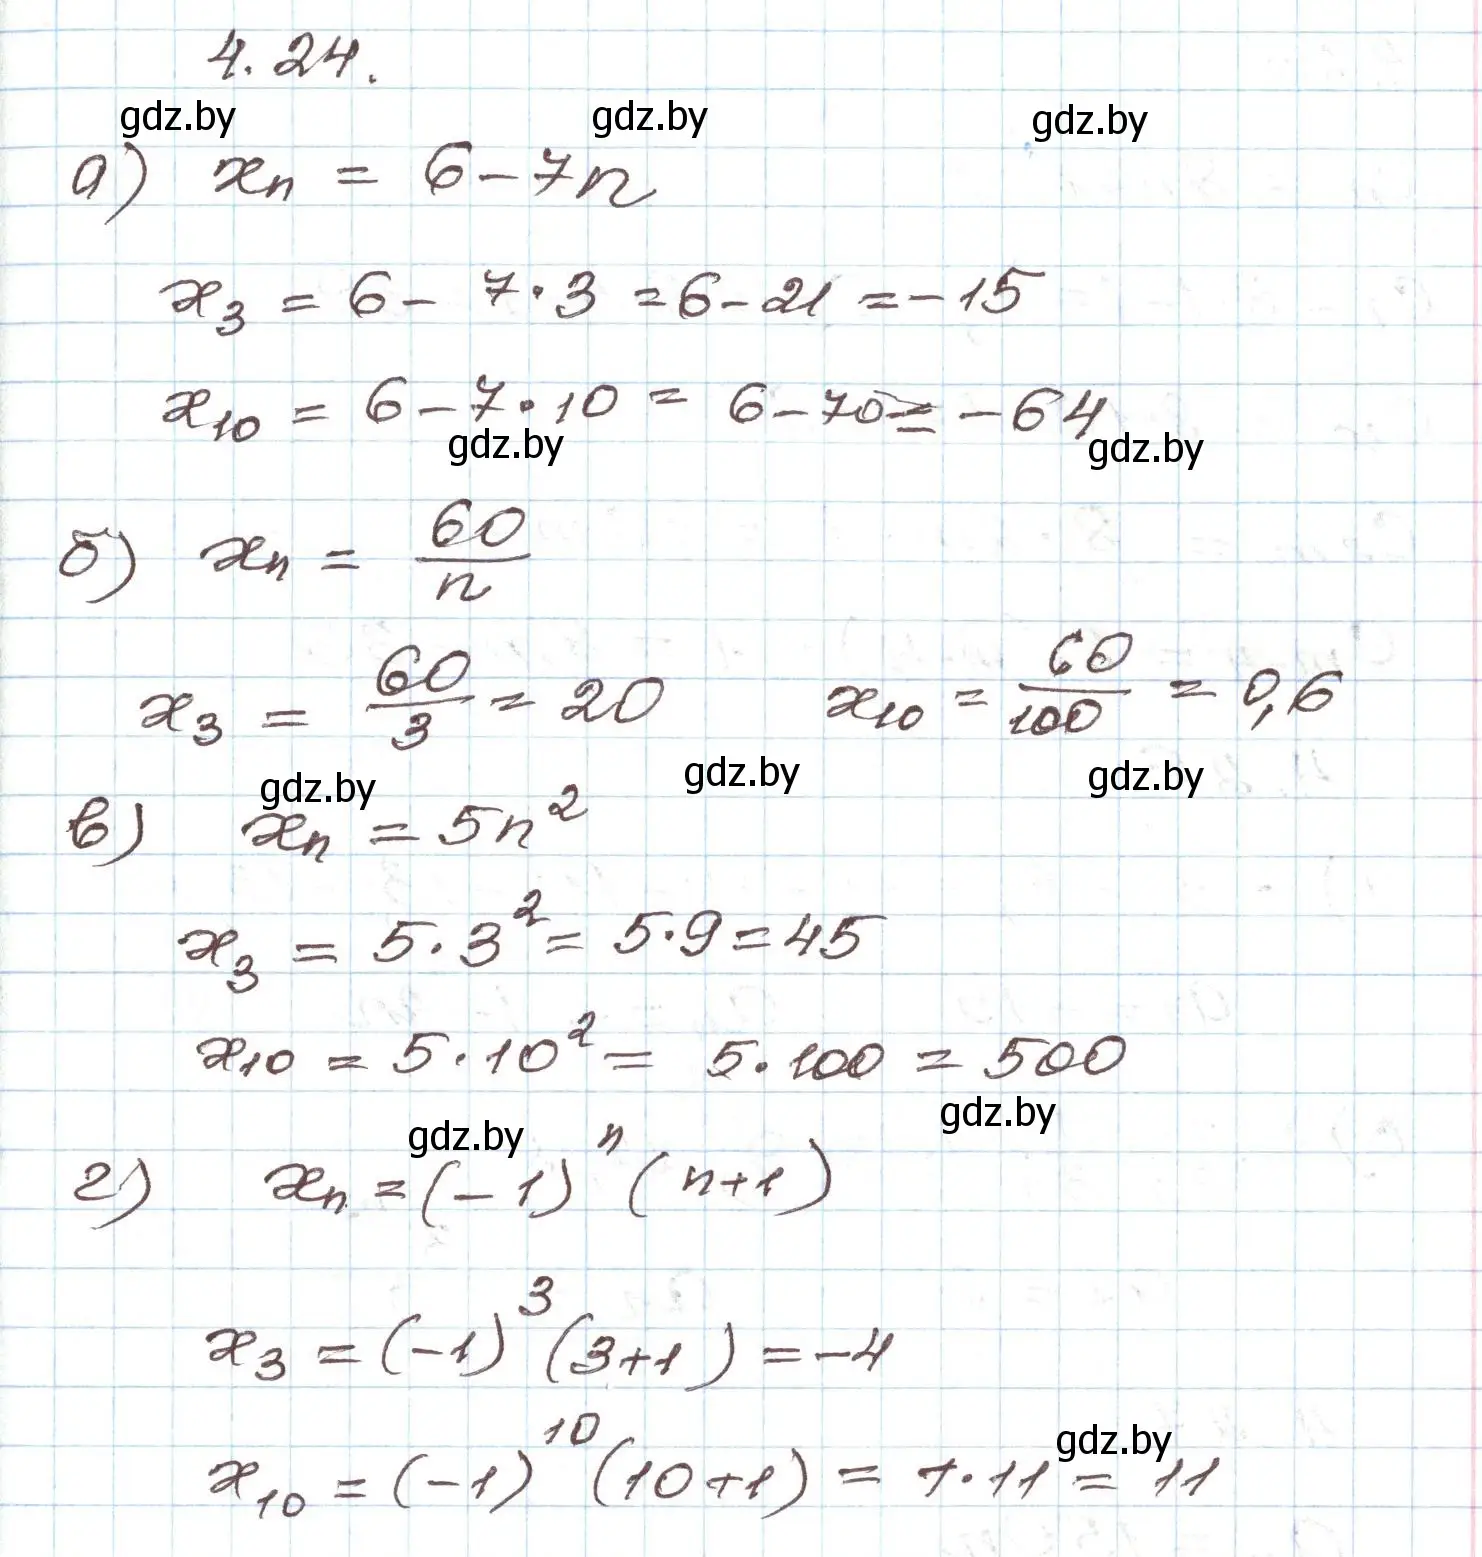 4.24.
gdz.by gdz.by gdz.by
а) xₙ = 6 - 7n
x₃ = 6 - 7·3 = 6 - 21 = -15
x₁₀ = 6 - 7·10 = 6 - 70 = -64
gdz.by gdz.by
б) xₙ = 60/n
x₃ = 60/3 = 20 x₁₀ = 60/100 = 0,6
gdz.by gdz.by gdz.by
в) xₙ = 5n²
x₃ = 5·3² = 5·9 = 45
x₁₀ = 5·10² = 5·100 = 500
gdz.by gdz.by
г) xₙ = (-1)ⁿ (n+1)
x₃ = (-1)³ (3+1) = -4
gdz.by
x₁₀ = (-1)¹⁰ (10+1) = 1·11 = 11